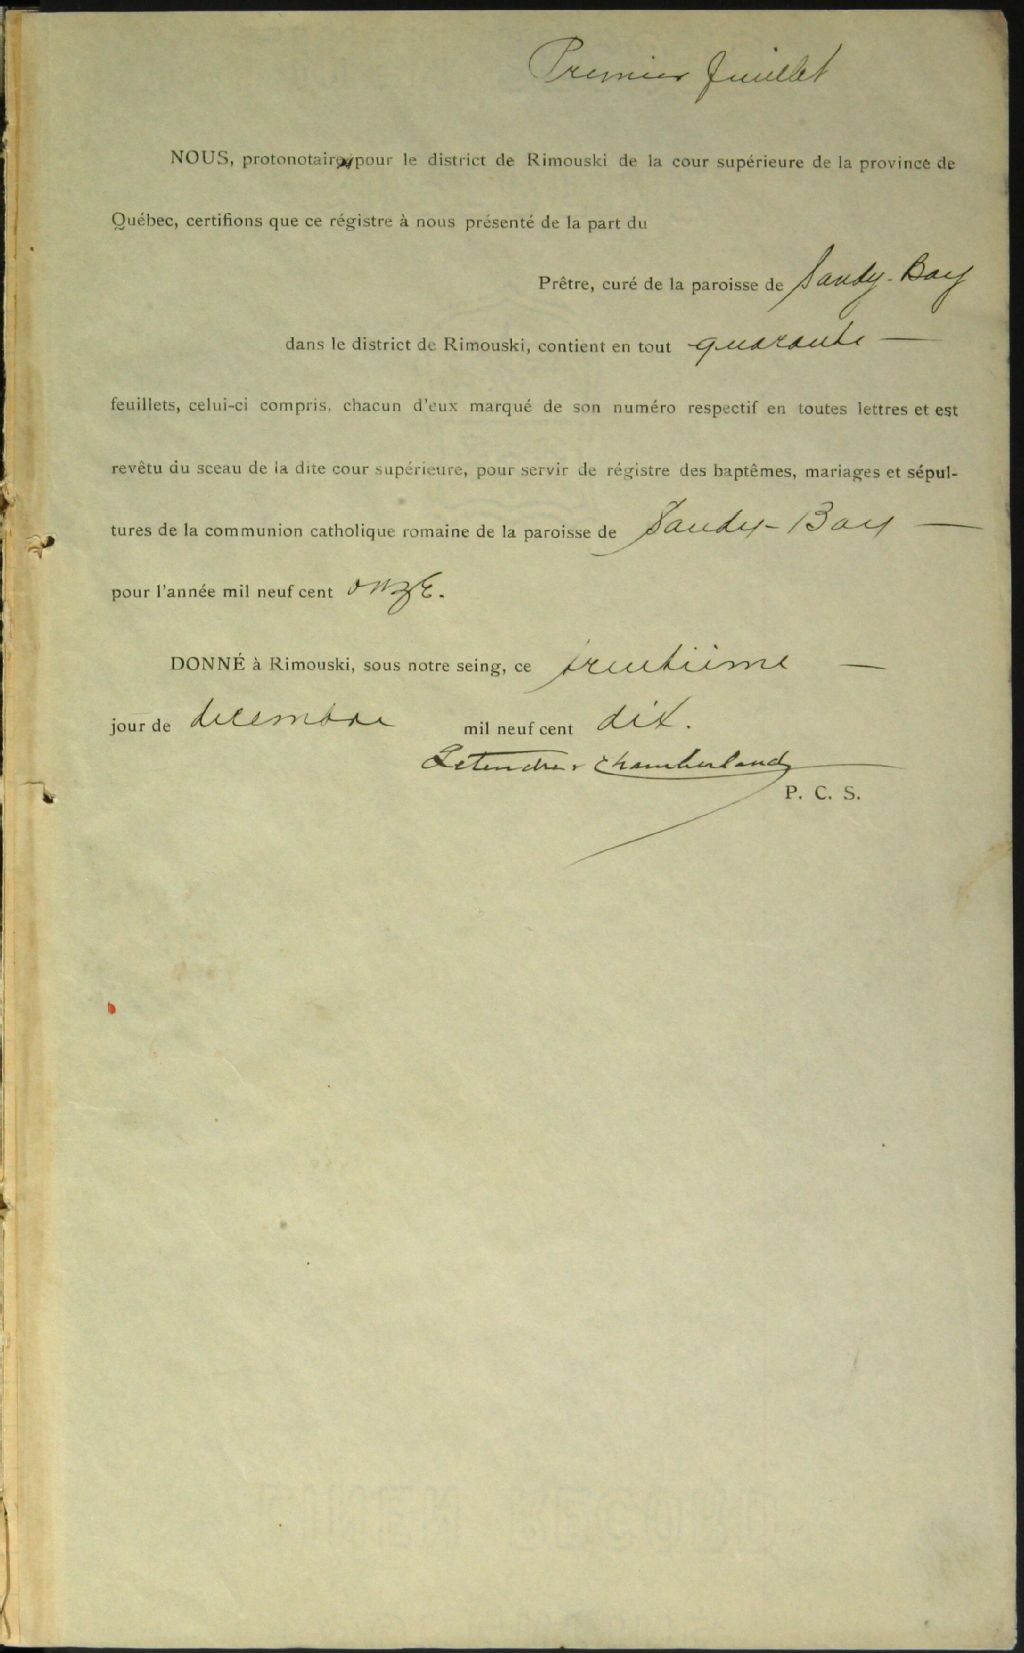 Premier feuillet
NOUS, protonotaires pour le district de Rimouski de la cour supérieure de la province de
Québec, certifions que ce régistre à nous présenté de la part du
Prêtre, curé de la paroisse de Sandy-Bay
dans le district de Rimouski, contient en tout quarante —
feuillets, celui-ci compris, chacun d'eux marqué de son numéro respectif en toutes lettres et est
revêtu du sceau de la dite cour supérieure, pour servir de régistre des baptêmes, mariages et sépul-
tures de la communion catholique romaine de la paroisse de Sandy-Bay —
pour l'année mil neuf cent onze.
DONNÉ à Rimouski, sous notre seing, ce trentième —
jour de decembre mil neuf cent dix.
Letendre & Chamberland
P. C. S.